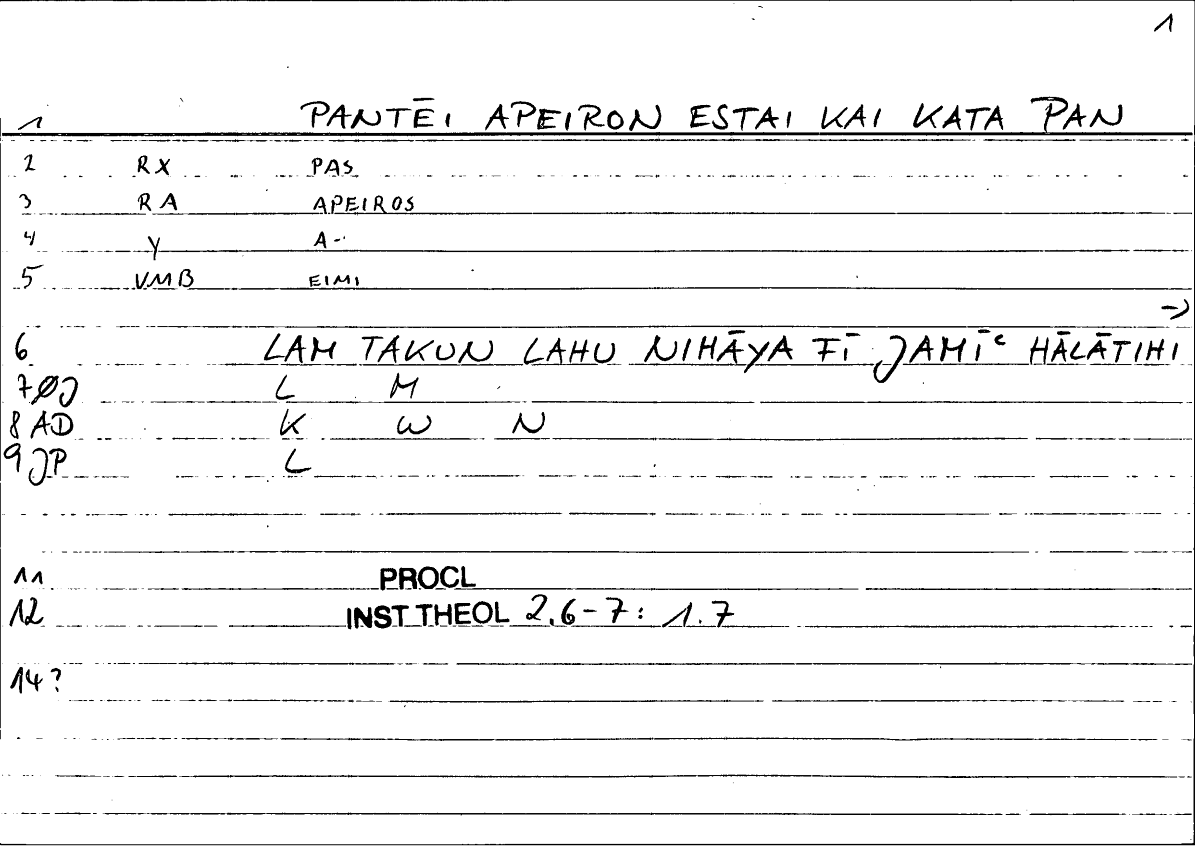 1
1 PANTĒI APEIRON ESTAI KAI KATA PAN
2 RX PAS
3 RA APEIROS
4 Y A-
5 VMB EIMI
→
6 LAM TAKUN LAHU NIHĀYA FĪ JAMĪʿ HĀLĀTIHI
7 ØJ L M
8 AD K W N
9 JP L
11 PROCL
12 INST THEOL 2.6-7: 1.7
14?